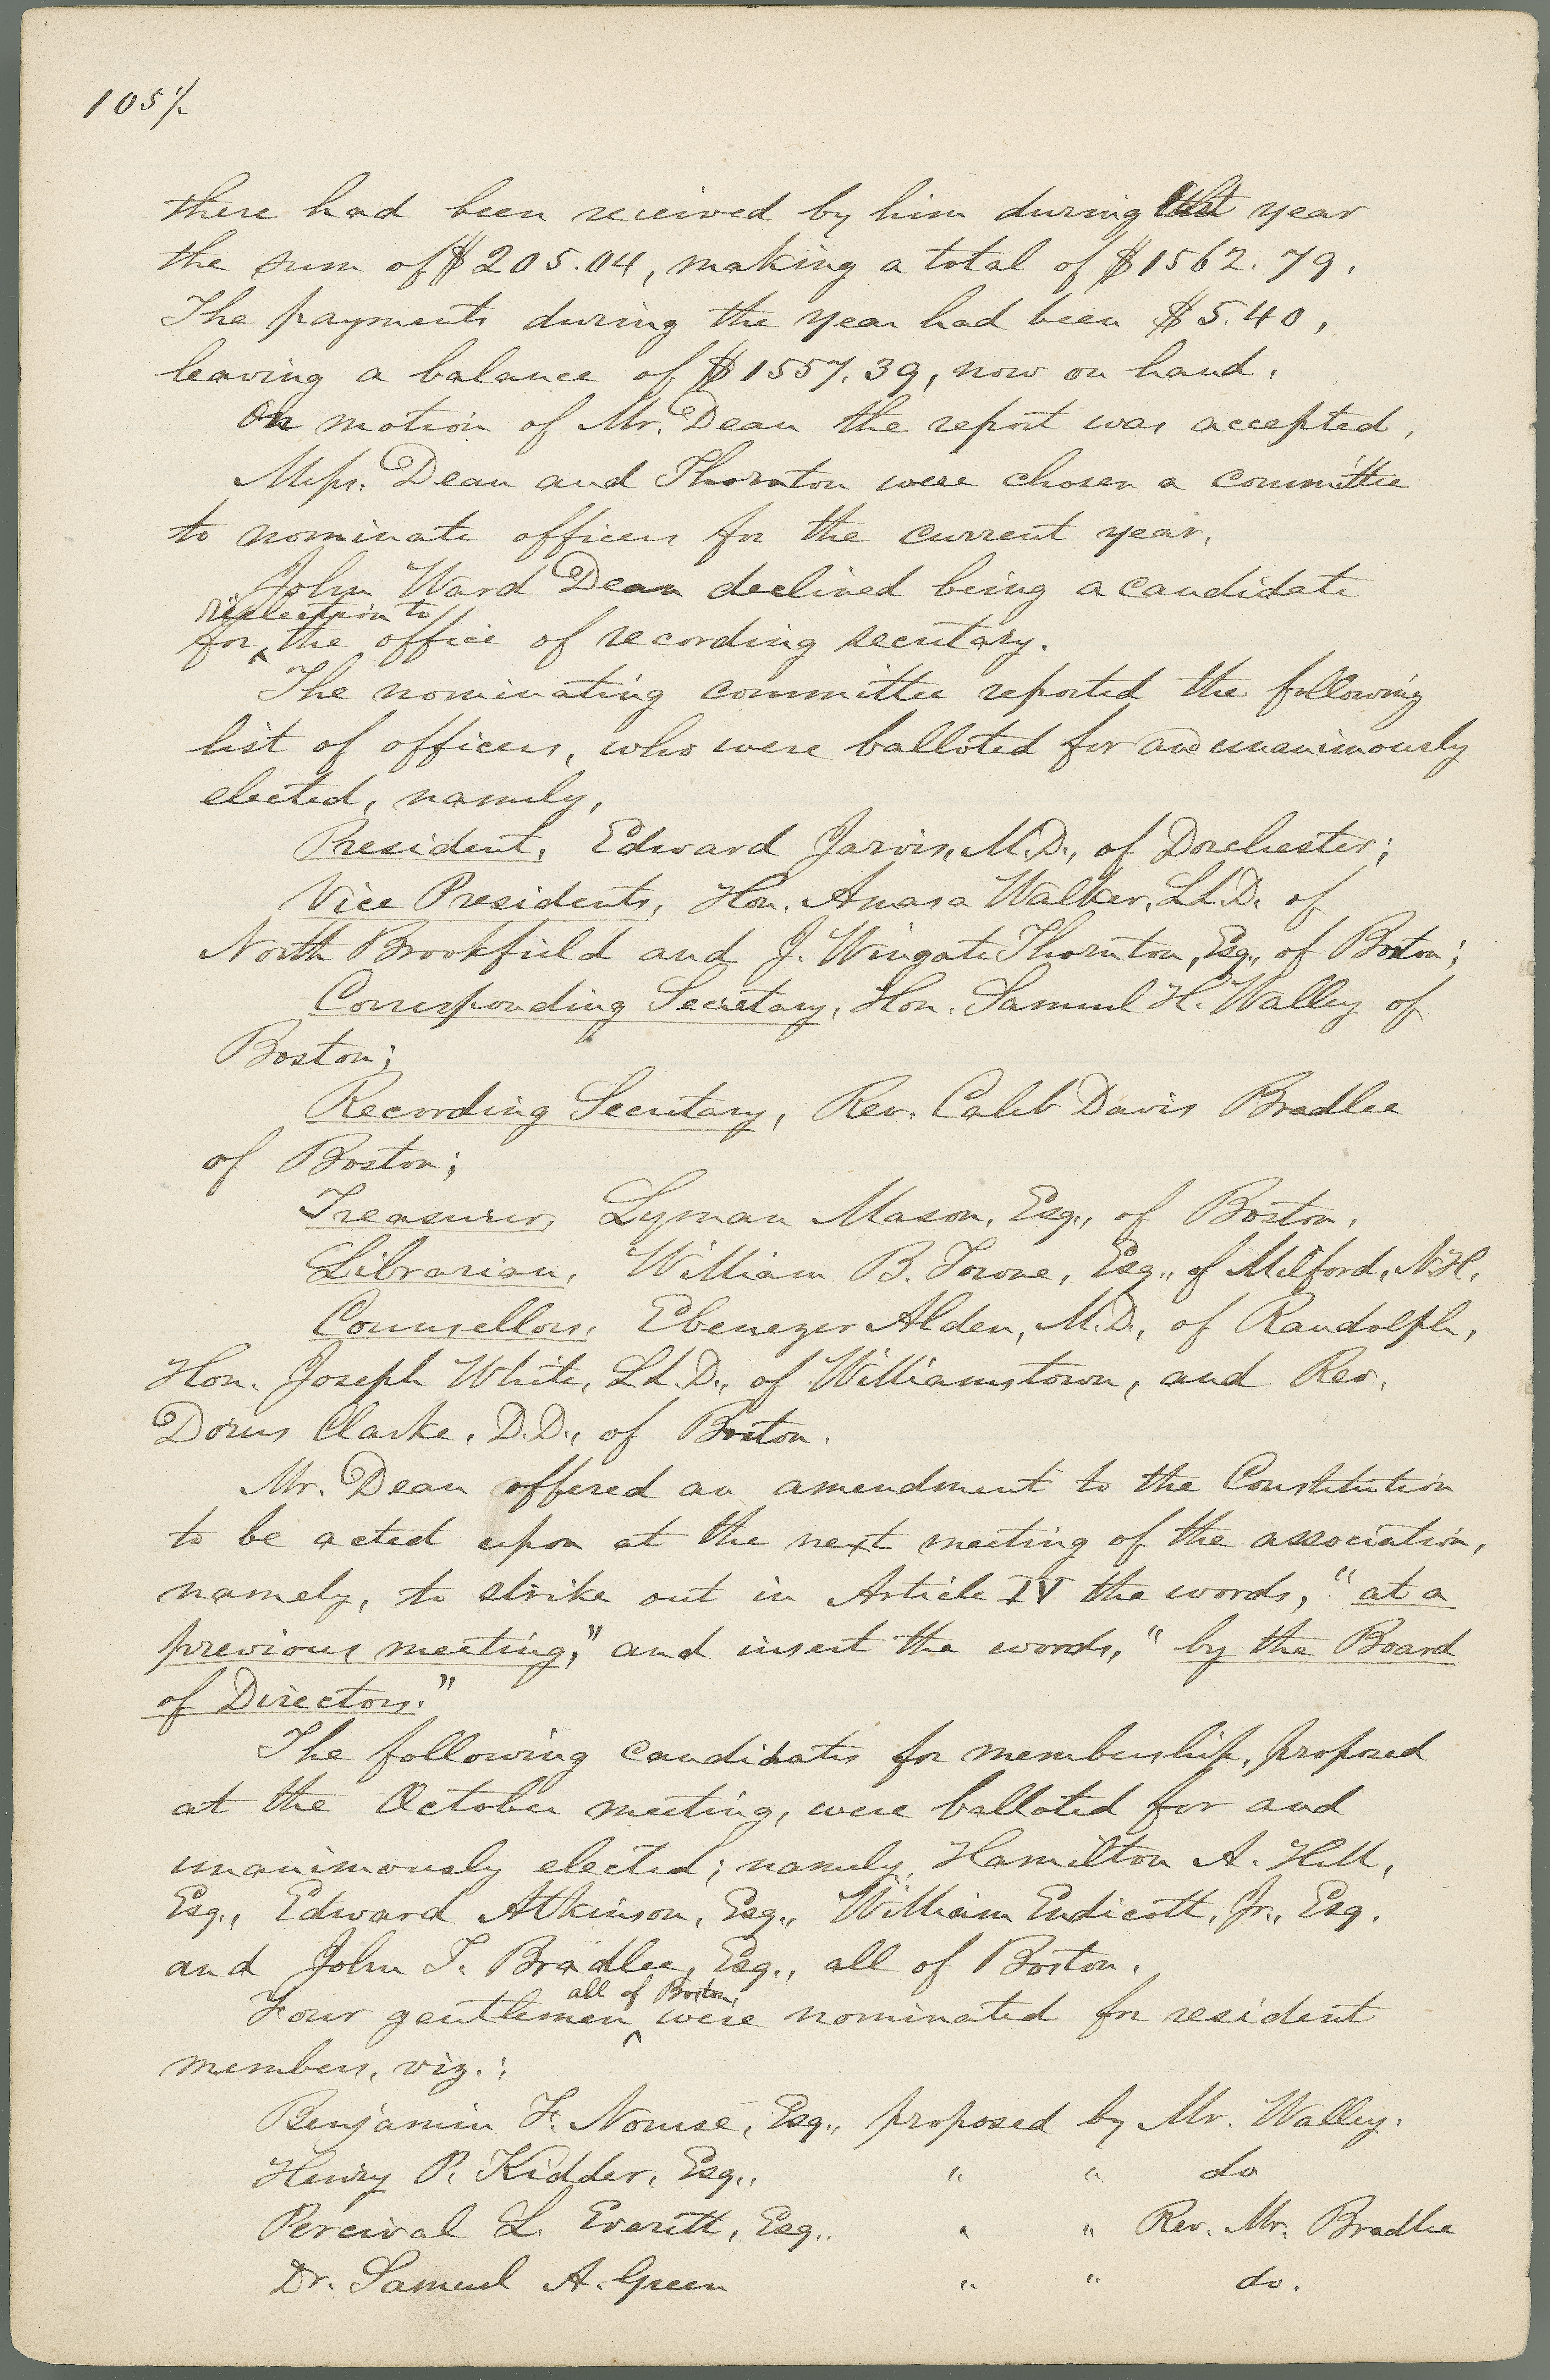 105½
there had been received by him during that year
the sum of $205.04, making a total of $1562.79.
The payments during the year had been $5.40,
leaving a balance of $1557.39, now on hand.
On motion of Mr. Dean the report was accepted.
Messrs. Dean and Thornton were chosen a committee
to nominate officers for the current year.
John Ward Dean declined being a candidate
reëlection to
for ‸ the office of recording secretary.
The nominating committee reported the following
list of officers, who were balloted for and unanimously
elected, namely,
President, Edward Jarvis, M.D., of Dorchester;
Vice Presidents, Hon. Amasa Walker, LL.D. of
North Brookfield and J. Wingate Thornton, Esq., of Boston;
Corresponding Secretary, Hon. Samuel H. Walley of
Boston;
Recording Secretary, Rev. Caleb Davis Bradlee
of Boston;
Treasurer, Lyman Mason, Esq., of Boston.
Librarian, William B. Towne, Esq., of Milford, N.H.
Counsellors, Ebenezer Alden, M.D., of Randolph,
Hon. Joseph White, LL.D., of Williamstown, and Rev.
Dorus Clarke, D.D., of Boston.
Mr. Dean offered an amendment to the Constitution
to be acted upon at the next meeting of the association,
namely, to strike out in Article IV the words, "at a
previous meeting," and insert the words, "by the Board
of Directors."
The following candidates for membership, proposed
at the October meeting, were balloted for and
unanimously elected; namely, Hamilton A. Hill,
Esq., Edward Atkinson, Esq., William Endicott, Jr., Esq.
and John T. Bradlee, Esq., all of Boston.
all of Boston,
Four gentlemen ‸ were nominated for resident
members, viz.:
Benjamin F. Nourse, Esq., proposed by Mr. Walley.
Henry P. Kidder, Esq., " " do
Percival L. Everett, Esq., " " Rev. Mr. Bradlee
Dr. Samuel A. Green " " do.